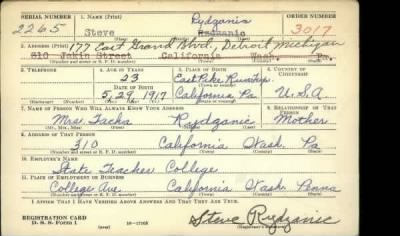 SERIAL NUMBER 1. NAME (Print) ORDER NUMBER
Rydzanic
2265 Steve Rudzanic 3017
(First) (Middle) (Last)
177 East Grand Blvd., Detroit, Michigan
2. ADDRESS (Print)
310 Jakin Street California Wash. Pa.
(Number and street or R. F. D. number) (Town) (County) (State)
3. TELEPHONE 4. AGE IN YEARS 5. PLACE OF BIRTH 6. COUNTRY OF CITIZENSHIP
23 East Pike Run Twp.
DATE OF BIRTH (Town or county)
5, 29, 1917 California Pa U.S.A.
(Exchange) (Number) (Mo.) (Day) (Yr.) (State or country)
7. NAME OF PERSON WHO WILL ALWAYS KNOW YOUR ADDRESS 8. RELATIONSHIP OF THAT PERSON
Mrs. Rydzanic Mother
(Mr., Mrs., Miss) (First) (Middle) (Last)
9. ADDRESS OF THAT PERSON
310 California Wash. Pa
(Number and street or R. F. D. number) (Town) (County) (State)
10. EMPLOYER'S NAME
State Teachers College
11. PLACE OF EMPLOYMENT OR BUSINESS
College Ave California Wash. Penna
(Number and street or R. F. D. number) (Town) (County) (State)
I AFFIRM THAT I HAVE VERIFIED ABOVE ANSWERS AND THAT THEY ARE TRUE.
REGISTRATION CARD
D. S. S. Form 1 (over) Steve Rydzanic
(Registrant's signature)